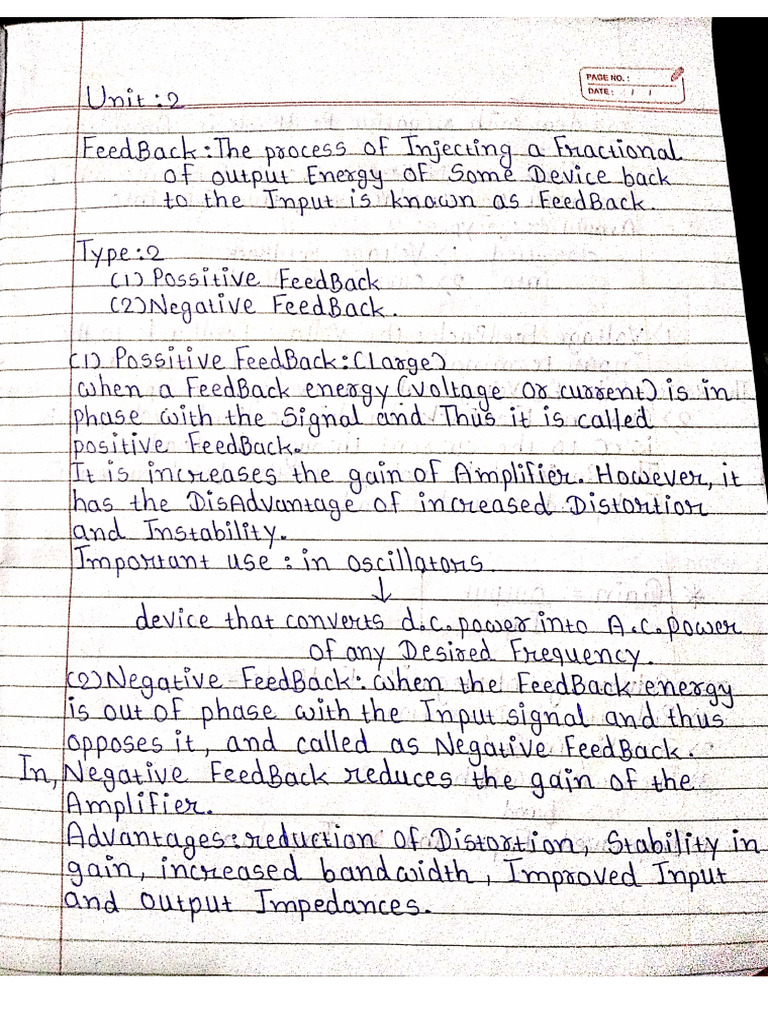 PAGE NO. :
DATE : / /
Unit : 2
FeedBack : The process of Injecting a Fractional
of output Energy of Some Device back
to the Input is known as FeedBack.
Type : 2
(1) Possitive FeedBack
(2) Negative FeedBack.
(1) Possitive FeedBack : (Large)
when a FeedBack energy (voltage or current) is in
phase with the Signal and Thus it is called
positive FeedBack.
It is increases the gain of Amplifier. However, it
has the DisAdvantage of increased Distortion
and Instability.
Important use : in oscillators
↓
device that converts d.c. power into A.C. power
of any Desired Frequency.
(2) Negative FeedBack : when the FeedBack energy
is out of phase with the Input signal and thus
opposes it, and called as Negative FeedBack.
In, Negative FeedBack reduces the gain of the
Amplifier.
Advantages : reduction of Distortion, Stability in
gain, increased bandwidth, Improved Input
and output Impedances.